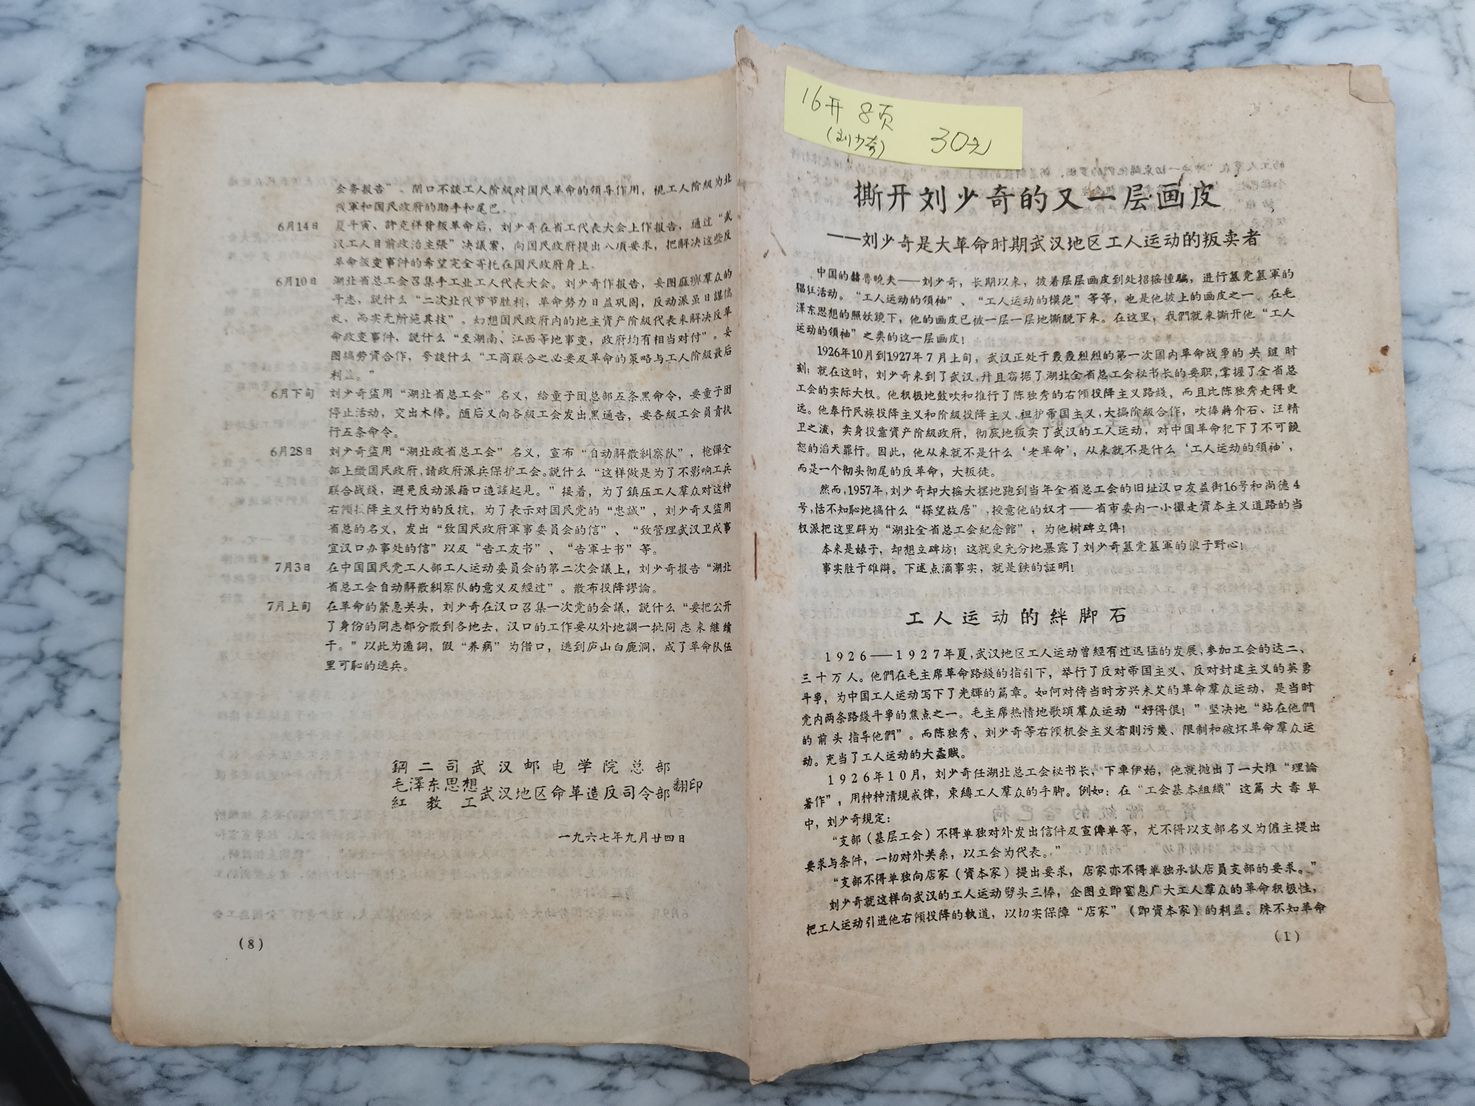 会务报告”。闭口不谈工人阶级对国民革命的领导作用，视工人阶级为北
伐軍和国民政府的助手和尾巴。
6月14日 夏斗寅、許克祥背叛革命后，刘少奇在省工代表大会上作报告，通过“武
汉工人目前政治主張”决議案，向国民政府提出八項要求，把解决这些反
革命叛变事件的希望完全寄托在国民政府身上。
6月10日 湖北省总工会召集手工业工人代表大会。刘少奇作报告，妄图麻痹羣众的
斗志，説什么“二次北伐节节胜利，革命势力日益巩固，反动派虽日謀倡
乱，而实无所施其技”。幻想国民政府内的地主資产阶級代表来解决反革
命政变事件，説什么“至湖南、江西等地事变，政府均有相当对付”。妄
图搞劳資合作，夸談什么“工商联合之必要及革命的策略与工人阶級最后
利益。”
6月下旬 刘少奇盗用“湖北省总工会”名义，給童子团总部五条黑命令，要童子团
停止活动，交出木棒。随后又向各級工会发出黑通告，要各級工会負責执
行五条命令。
6月28日 刘少奇盗用“湖北政省总工会”名义，宣布“自动解散糾察队”，枪弹全
部上繳国民政府，請政府派兵保护工会。説什么“这样做是为了不影响工兵
联合战綫，避免反动派藉口造謠起見。”接着，为了鎮压工人羣众对这种
右傾投降主义行为的反抗，为了表示对国民党的“忠誠”，刘少奇又盗用
省总的名义，发出“致国民政府軍事委员会的信”、“致管理武汉卫戍事
宜汉口办事处的信”以及“告工友书”、“告軍士书”等。
7月3日 在中国国民党工人部工人运动委员会的第二次会議上，刘少奇报告“湖北
省总工会自动解散糾察队的意义及經过”。散布投降謬論。
7月上旬 在革命的緊急关头，刘少奇在汉口召集一次党的会議，説什么“要把公开
了身份的同志都分散到各地去，汉口的工作要从外地調一批同志来继續
干。”以此为遁詞，假“养病”为借口，逃到庐山白鹿洞，成了革命队伍
里可恥的逃兵。
鋼二司武汉邮电学院总部
毛澤东思想
紅教工武汉地区革命造反司令部翻印
一九六七年九月廿四日
(8)
16开 8页
(刘少奇) 30元
撕开刘少奇的又一层画皮
——刘少奇是大革命时期武汉地区工人运动的叛卖者
中国的赫魯晓夫——刘少奇，长期以来，披着层层画皮到处招摇撞騙，进行篡党篡軍的
猖狂活动。“工人运动的領袖”、“工人运动的模范”等等，也是他披上的画皮之一。在毛
澤东思想的照妖鏡下，他的画皮已被一层一层地撕脱下来。在这里，我們就来撕开他“工人
运动的領袖”之类的这一层画皮！
1926年10月到1927年7月上旬，武汉正处于轰轰烈烈的第一次国内革命战爭的关鍵时
刻；就在这时，刘少奇来到了武汉，幷且窃据了湖北全省总工会秘书长的要职，掌握了全省总
工会的实际大权。他积极地鼓吹和推行了陈独秀的右傾投降主义路綫，而且比陈独秀走得更
远。他奉行民族投降主义和阶級投降主义，袒护帝国主义，大搞阶級合作，吹捧蔣介石、汪精
卫之流，卖身投靠資产阶級政府，彻底地叛卖了武汉的工人运动，对中国革命犯下了不可饒
恕的滔天罪行。因此，他从来就不是什么‘老革命’，从来就不是什么‘工人运动的領袖’，
而是一个彻头彻尾的反革命，大叛徒。
然而，1957年，刘少奇却大搖大摆地跑到当年全省总工会的旧址汉口友益街16号和尚德4
号，恬不知恥地搞什么“探望故居”，授意他的奴才——省市委内一小撮走資本主义道路的当
权派把这里辟为“湖北全省总工会紀念館”，为他树碑立傳！
本来是婊子，却想立碑坊！这就更充分地暴露了刘少奇篡党篡軍的狼子野心！
事实胜于雄辯。下述点滴事实，就是鉄的証明！
工人运动的絆脚石
1926——1927年夏，武汉地区工人运动曾經有过迅猛的发展，参加工会的达二、
三十万人。他們在毛主席革命路綫的指引下，举行了反对帝国主义、反对封建主义的英勇
斗爭，为中国工人运动写下了光輝的篇章。如何对待当时方兴未艾的革命羣众运动，是当时
党内两条路綫斗爭的焦点之一。毛主席热情地歌頌羣众运动“好得很！”坚决地“站在他們
的前头指导他們”。而陈独秀、刘少奇等右傾机会主义者則污蔑、限制和破坏革命羣众运
动。充当了工人运动的大蟊賊。
1926年10月，刘少奇任湖北总工会秘书长，下車伊始，他就抛出了一大堆“理論
著作”，用种种清規戒律，束縛工人羣众的手脚。例如：在“工会基本組織”这篇大毒草
中，刘少奇規定：
“支部（基层工会）不得单独对外发出信件及宣傳单等，尤不得以支部名义为雇主提出
要求与条件，一切对外关系，以工会为代表。”
“支部不得单独向店家（資本家）提出要求，店家亦不得单独承認店員支部的要求。”
刘少奇就这样向武汉的工人运动劈头三棒，企图立即窒息广大工人羣众的革命积极性，
把工人运动引进他右傾投降的軌道，以切实保障“店家”（即資本家）的利益。殊不知革命
(1)